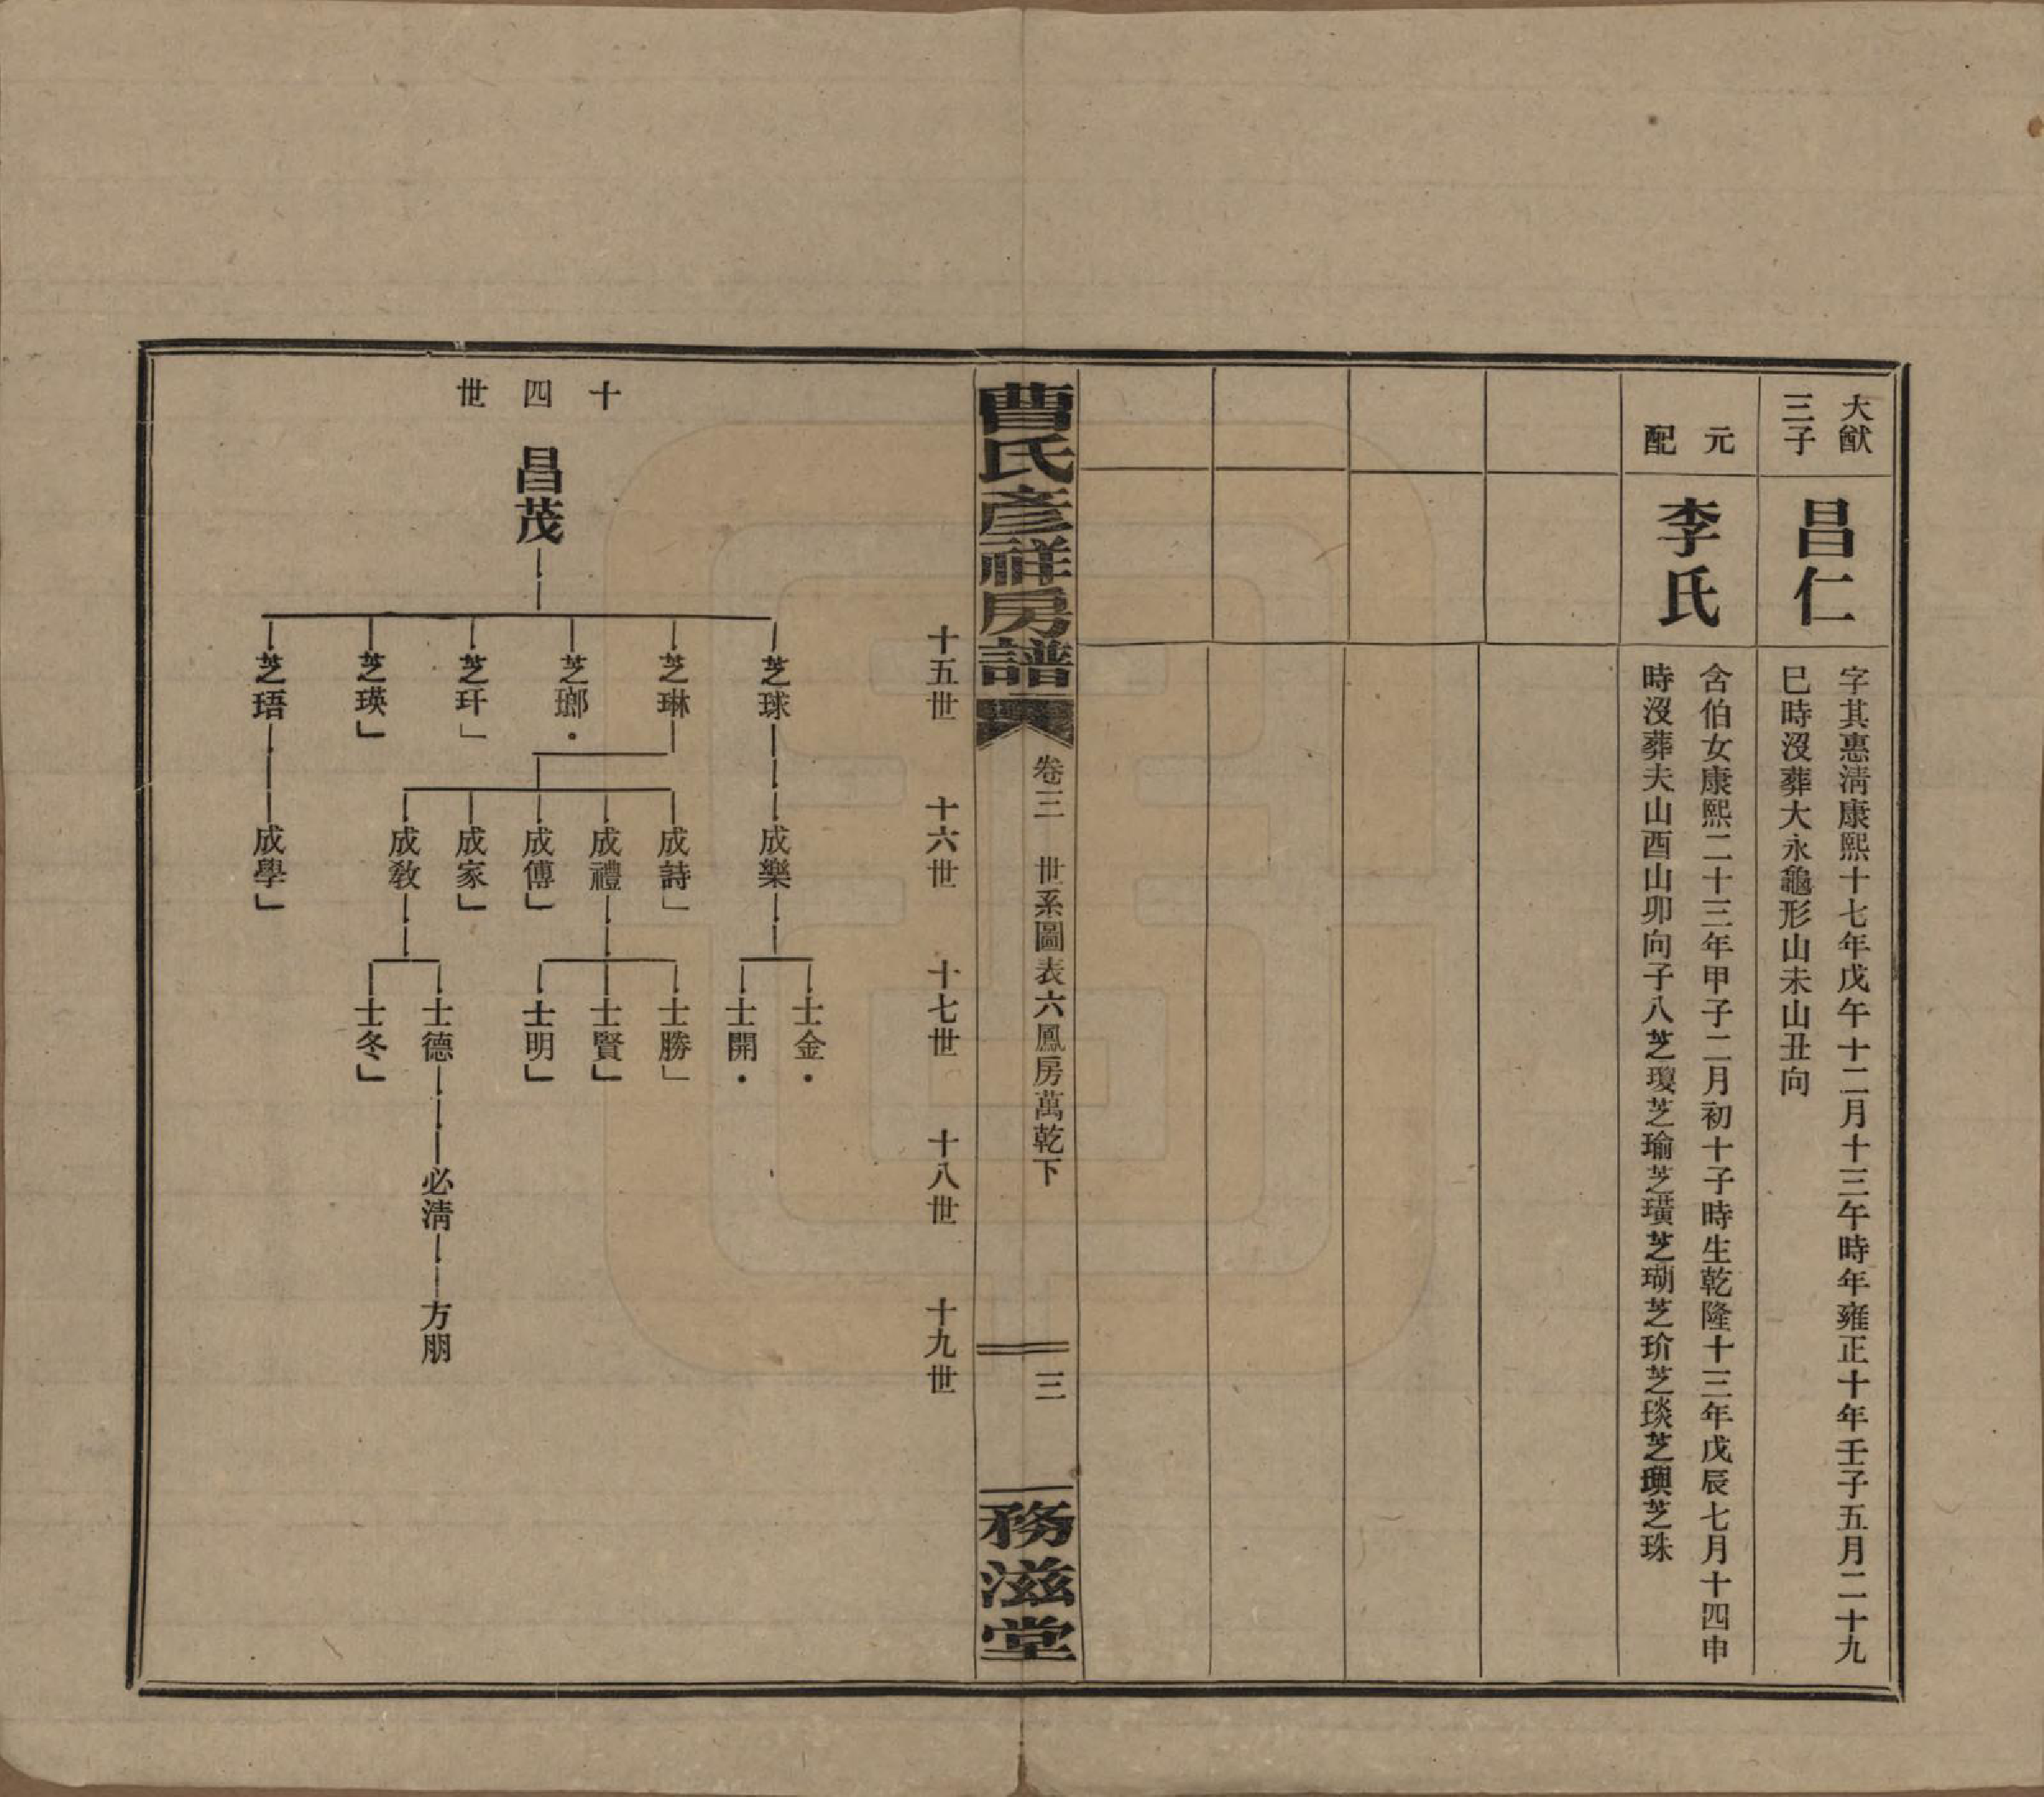 大猷
三子
昌仁
字其惠淸康熙十七年戊午十二月十三午時年雍正十年壬子五月二十九
巳時沒葬大永龜形山未山丑向
元
配
李氏
含伯女康熙二十三年甲子二月初十子時生乾隆十三年戊辰七月十四申
時沒葬夫山酉山卯向子八芝瓊芝瑜芝璜芝瑚芝玠芝琰芝璵芝珠
曹氏彦祥房譜
卷三 世系圖表六鳳房萬乾下
三
務滋堂
十五世 十六世 十七世 十八世 十九世
十四世
昌茂
芝球 成樂 士金・
士開・
芝琳 成詩」
成禮 士勝」
士賢」
士明」
成傅」
成家」
成教 士德 必淸 方朋
士冬」
芝瑯・
芝玕」
芝瑛」
芝珸 成學」